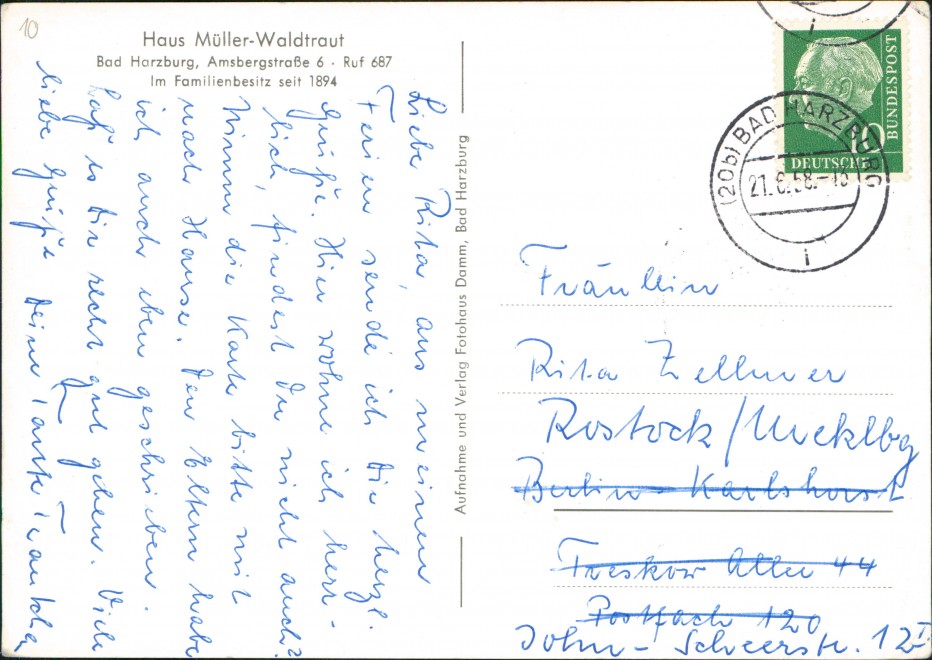 10
Haus Müller-Waldtraut
Bad Harzburg, Amsbergstraße 6 · Ruf 687
Im Familienbesitz seit 1894
Liebe Rita, aus meinen
Ferien sende ich Dir herzl.
Grüße. Hier wohne ich herr-
lich, findest Du nicht auch?
Nimm die Karte bitte mit
nach Hause. Den Eltern habe
ich auch eben geschrieben.
Laß es Dir recht gut gehen. Viele
liebe Grüße Deine Tante
Aufnahme und Verlag Fotohaus Damm, Bad Harzburg
DEUTSCHE
BUNDESPOST
10
(20b) BAD HARZBURG
i
i
Fräulein
Rita Zellmer
Rostock/Mecklbg
Berlin-Karlshorst
Treskow Allee 44
Postfach 120
John-Scheerstr. 12 I